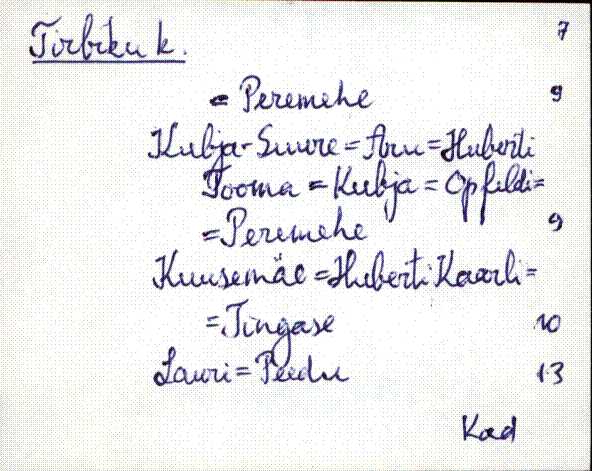 Tirbiku k. 7
= Peremehe 9
Kubja-Suure = Aru = Huberti
Tooma = Kubja = Opfeldi =
= Peremehe 9
Kuusemäe = Huberti Kaarli =
= Tingase 10
Lauri = Peedu 13
Kad